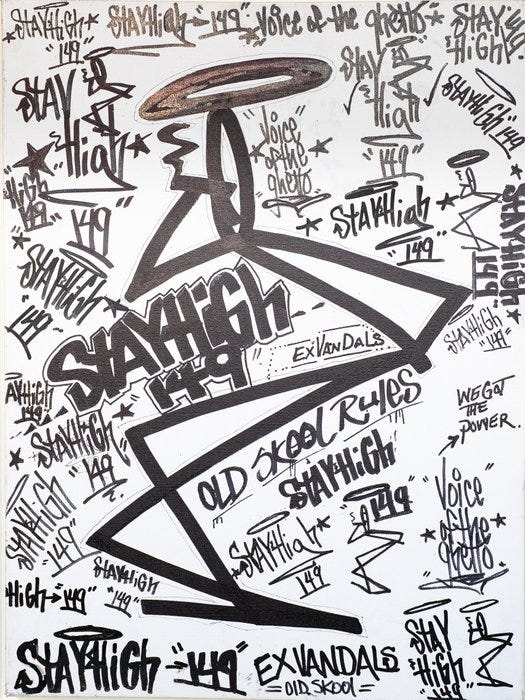 STAYHIGH "149"
STAYHIGH "149" Voice of the ghetto
STAY HIGH "149"
STAY
HIGH
"149"
Voice
of the
ghetto
STAY
HIGH
"149"
STAYHIGH
"149"
HIGH
"149"
STAYHIGH
"149"
STAYHIGH
"149"
STAYHIGH
149
STAYHIGH
"149"
STAYHIGH
"149"
EX VANDALS
AYHIGH
149
OLD SKOOL RULES
WE GOT
THE
POWER.
STAYHIGH
149
STAYHIGH
"149"
STAYHIGH
"149"
Voice
of the
ghetto
STAYHIGH
149
STAYHIGH
"149"
HIGH "149"
STAYHIGH "149"
EX VANDALS
=OLD SKOOL=
STAY
HIGH
"149"